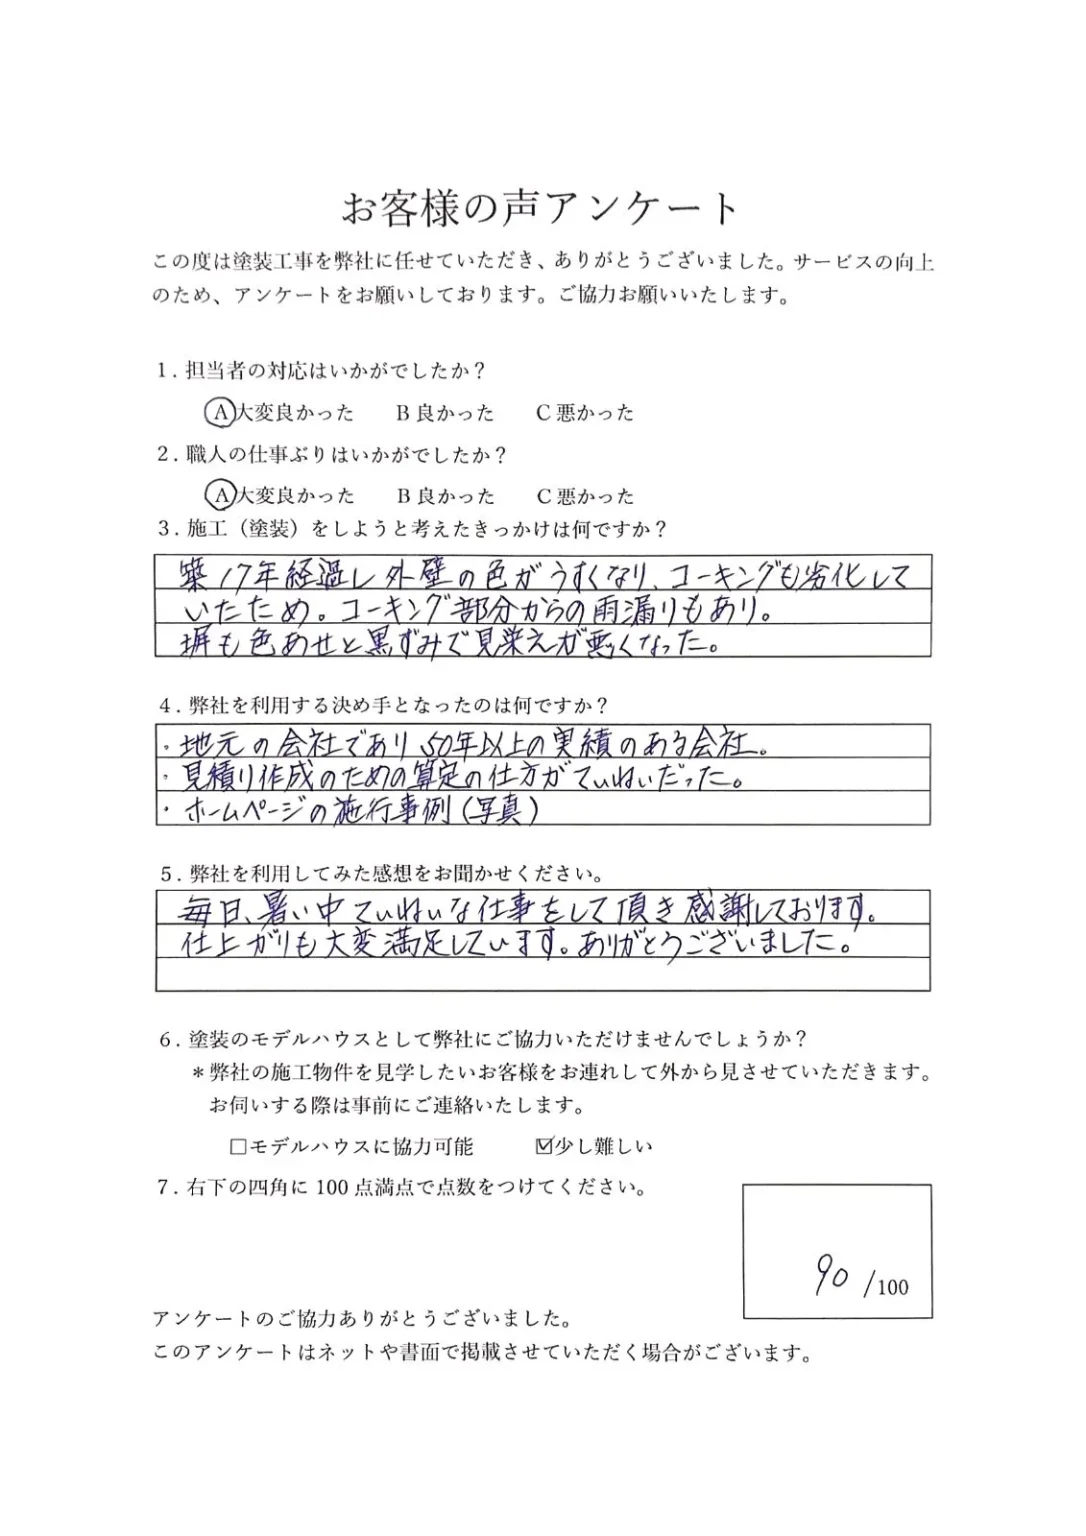 お客様の声アンケート
この度は塗装工事を弊社に任せていただき、ありがとうございました。サービスの向上
のため、アンケートをお願いしております。ご協力お願いいたします。
1. 担当者の対応はいかがでしたか？
A大変良かった B良かった C悪かった
2. 職人の仕事ぶりはいかがでしたか？
A大変良かった B良かった C悪かった
3. 施工（塗装）をしようと考えたきっかけは何ですか？
築17年経過し外壁の色がうすくなり、コーキングも劣化して
いたため。コーキング部分からの雨漏りもあり。
塀も色あせと黒ずみで見栄えが悪くなった。
4. 弊社を利用する決め手となったのは何ですか？
・地元の会社であり50年以上の実績のある会社。
・見積り作成のための算定の仕方がていねいだった。
・ホームページの施行事例(写真)
5. 弊社を利用してみた感想をお聞かせください。
毎日、暑い中ていねいな仕事をして頂き感謝しております。
仕上がりも大変満足しています。ありがとうございました。
6. 塗装のモデルハウスとして弊社にご協力いただけませんでしょうか？
＊弊社の施工物件を見学したいお客様をお連れして外から見させていただきます。
お伺いする際は事前にご連絡いたします。
□モデルハウスに協力可能 ☑少し難しい
7. 右下の四角に100点満点で点数をつけてください。
90 /100
アンケートのご協力ありがとうございました。
このアンケートはネットや書面で掲載させていただく場合がございます。